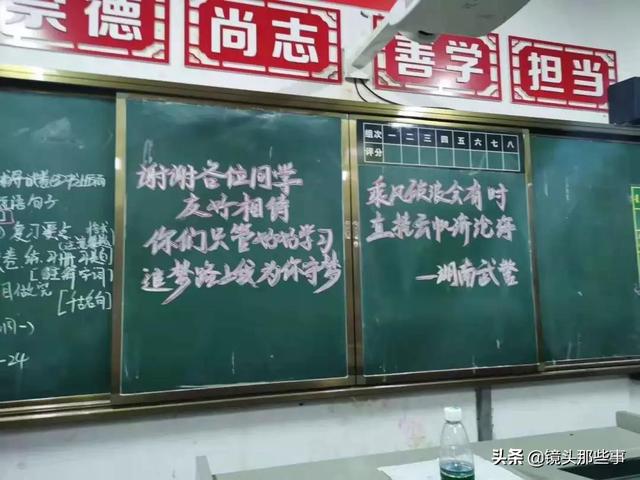 崇德
尚志
善学
担当
组次 一 二 三 四 五 六 七 八
评分
谢谢各位同学
友好相借
你们只管好好学习
追梦路上我为你守梦
乘风破浪会有时
直挂云帆济沧海
—湖南武警
语句子
复习要点
[注解字词]
[千古名句]
-24
头条 @镜头那些事